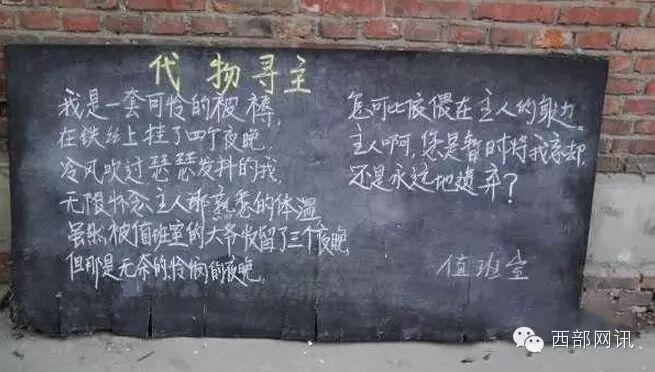 代物寻主
我是一套可怜的被褥,
在铁丝上挂了四个夜晚.
冷风吹过瑟瑟发抖的我,
无限怀念主人那熟悉的体温
虽然被值班室的大爷收留了三个夜晚
但那是无奈的怜悯的夜晚.
怎可比依偎在主人的身边。
主人啊,您是暂时将我忘却,
还是永远地遗弃?
值班室
西部网讯